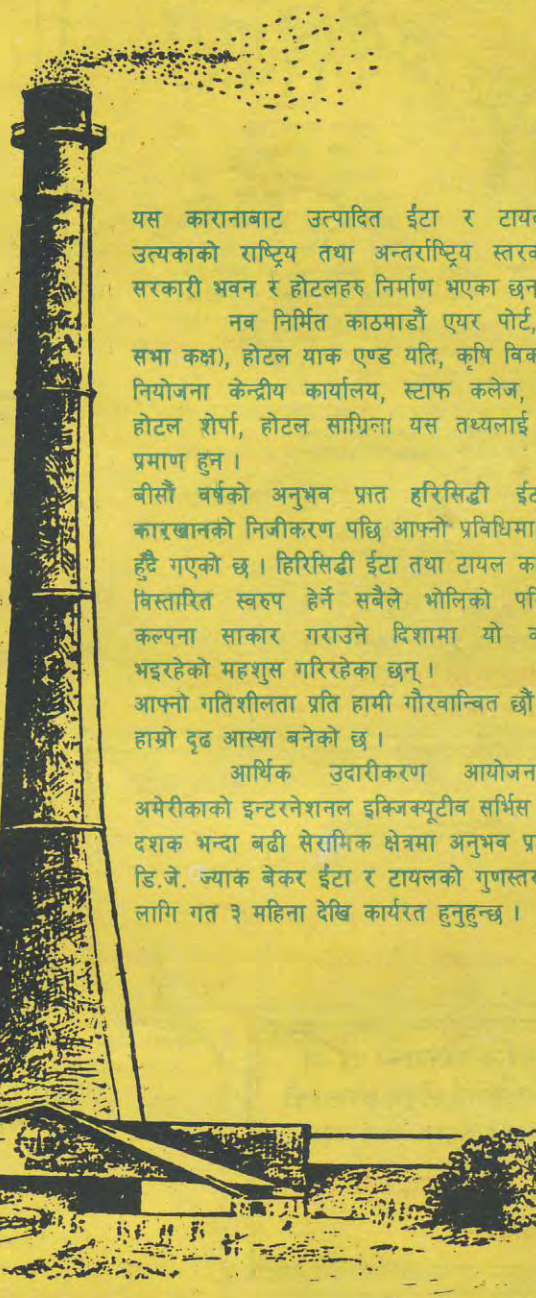 यस कारानाबाट उत्पादित ईंटा र टायल
उत्यकाको राष्ट्रिय तथा अन्तर्राष्ट्रिय स्तरक
सरकारी भवन र होटलहरु निर्माण भएका छन
नव निर्मित काठमाडौं एयर पोर्ट,
सभा कक्ष), होटल याक एण्ड यति, कृषि विक
नियोजना केन्द्रीय कार्यालय, स्टाफ कलेज,
होटल शेर्पा, होटल साग्रिला यस तथ्यलाई
प्रमाण हुन ।
बीसौं वर्षको अनुभव प्रात हरिसिद्धी ईट
कारखानको निजीकरण पछि आफ्नो प्रविधिमा
हुँदै गएको छ । हिरिसिद्धी ईटा तथा टायल का
विस्तारित स्वरुप हेर्ने सबैले भोलिको परि
कल्पना साकार गराउने दिशामा यो क
भइरहेको महशुस गरिरहेका छन् ।
आफ्नो गतिशीलता प्रति हामी गौरवान्वित छौं
हाम्रो दृढ आस्था बनेको छ ।
आर्थिक उदारीकरण आयोजन
अमेरीकाको इन्टरनेशनल इक्जिक्यूटीव सर्भिस
दशक भन्दा बढी सेरामिक क्षेत्रमा अनुभव प्र
डि.जे. ज्याक बेकर ईंटा र टायलको गुणस्तर
लागि गत ३ महिना देखि कार्यरत हुनुहुन्छ ।